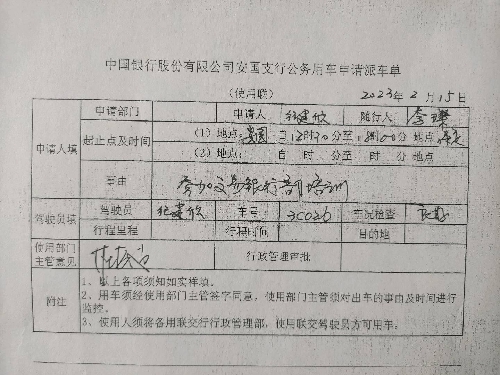 中国银行股份有限公司安国支行公务用车申请派车单
(使用联) 2023年2月15日
申请人填 申请部门 申请人 随行人
起止点及时间 (1) 地点: 安国 自 时 分至 时 分 地点
(2) 地点: 自 时 分至 时 分 地点
事由 参加交易银行部培训
驾驶员填 驾驶员 车号 车况检查 良好
行程里程 行程时间 目的地
使用部门主管意见 行政管理审批
附注 1、以上各项须知如实样填。
2、用车须经使用部门主管签字同意,使用部门主管须对出车的事由及时间进行
监控。
3、使用人须将备用联交行行政管理部,使用联交驾驶员方可用车。